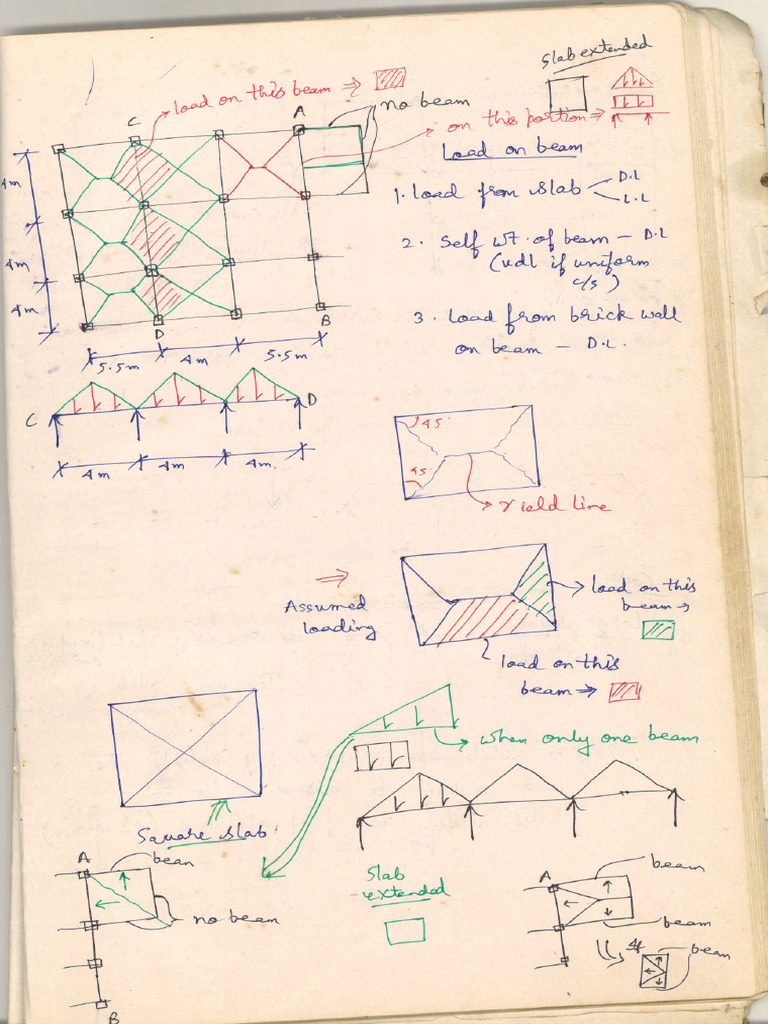 Slab extended
C
load on this beam ⇒
A
no beam
on this portion ⇒
Load on beam
1. Load from slab
D.L
L.L
2. Self wt. of beam — D.L
(udl if uniform
c/s)
3. Load from brick wall
on beam — D.L.
4m
4m
4m
D
B
5.5m
4m
5.5m
C
D
4m
4m
4m.
45°
45°
Yield line
⇒
Assumed
loading
load on this
beam →
load on this
beam ⇒
when only one beam
Square slab
A
bean
no beam
B
Slab
extended
A
beam
beam
beam